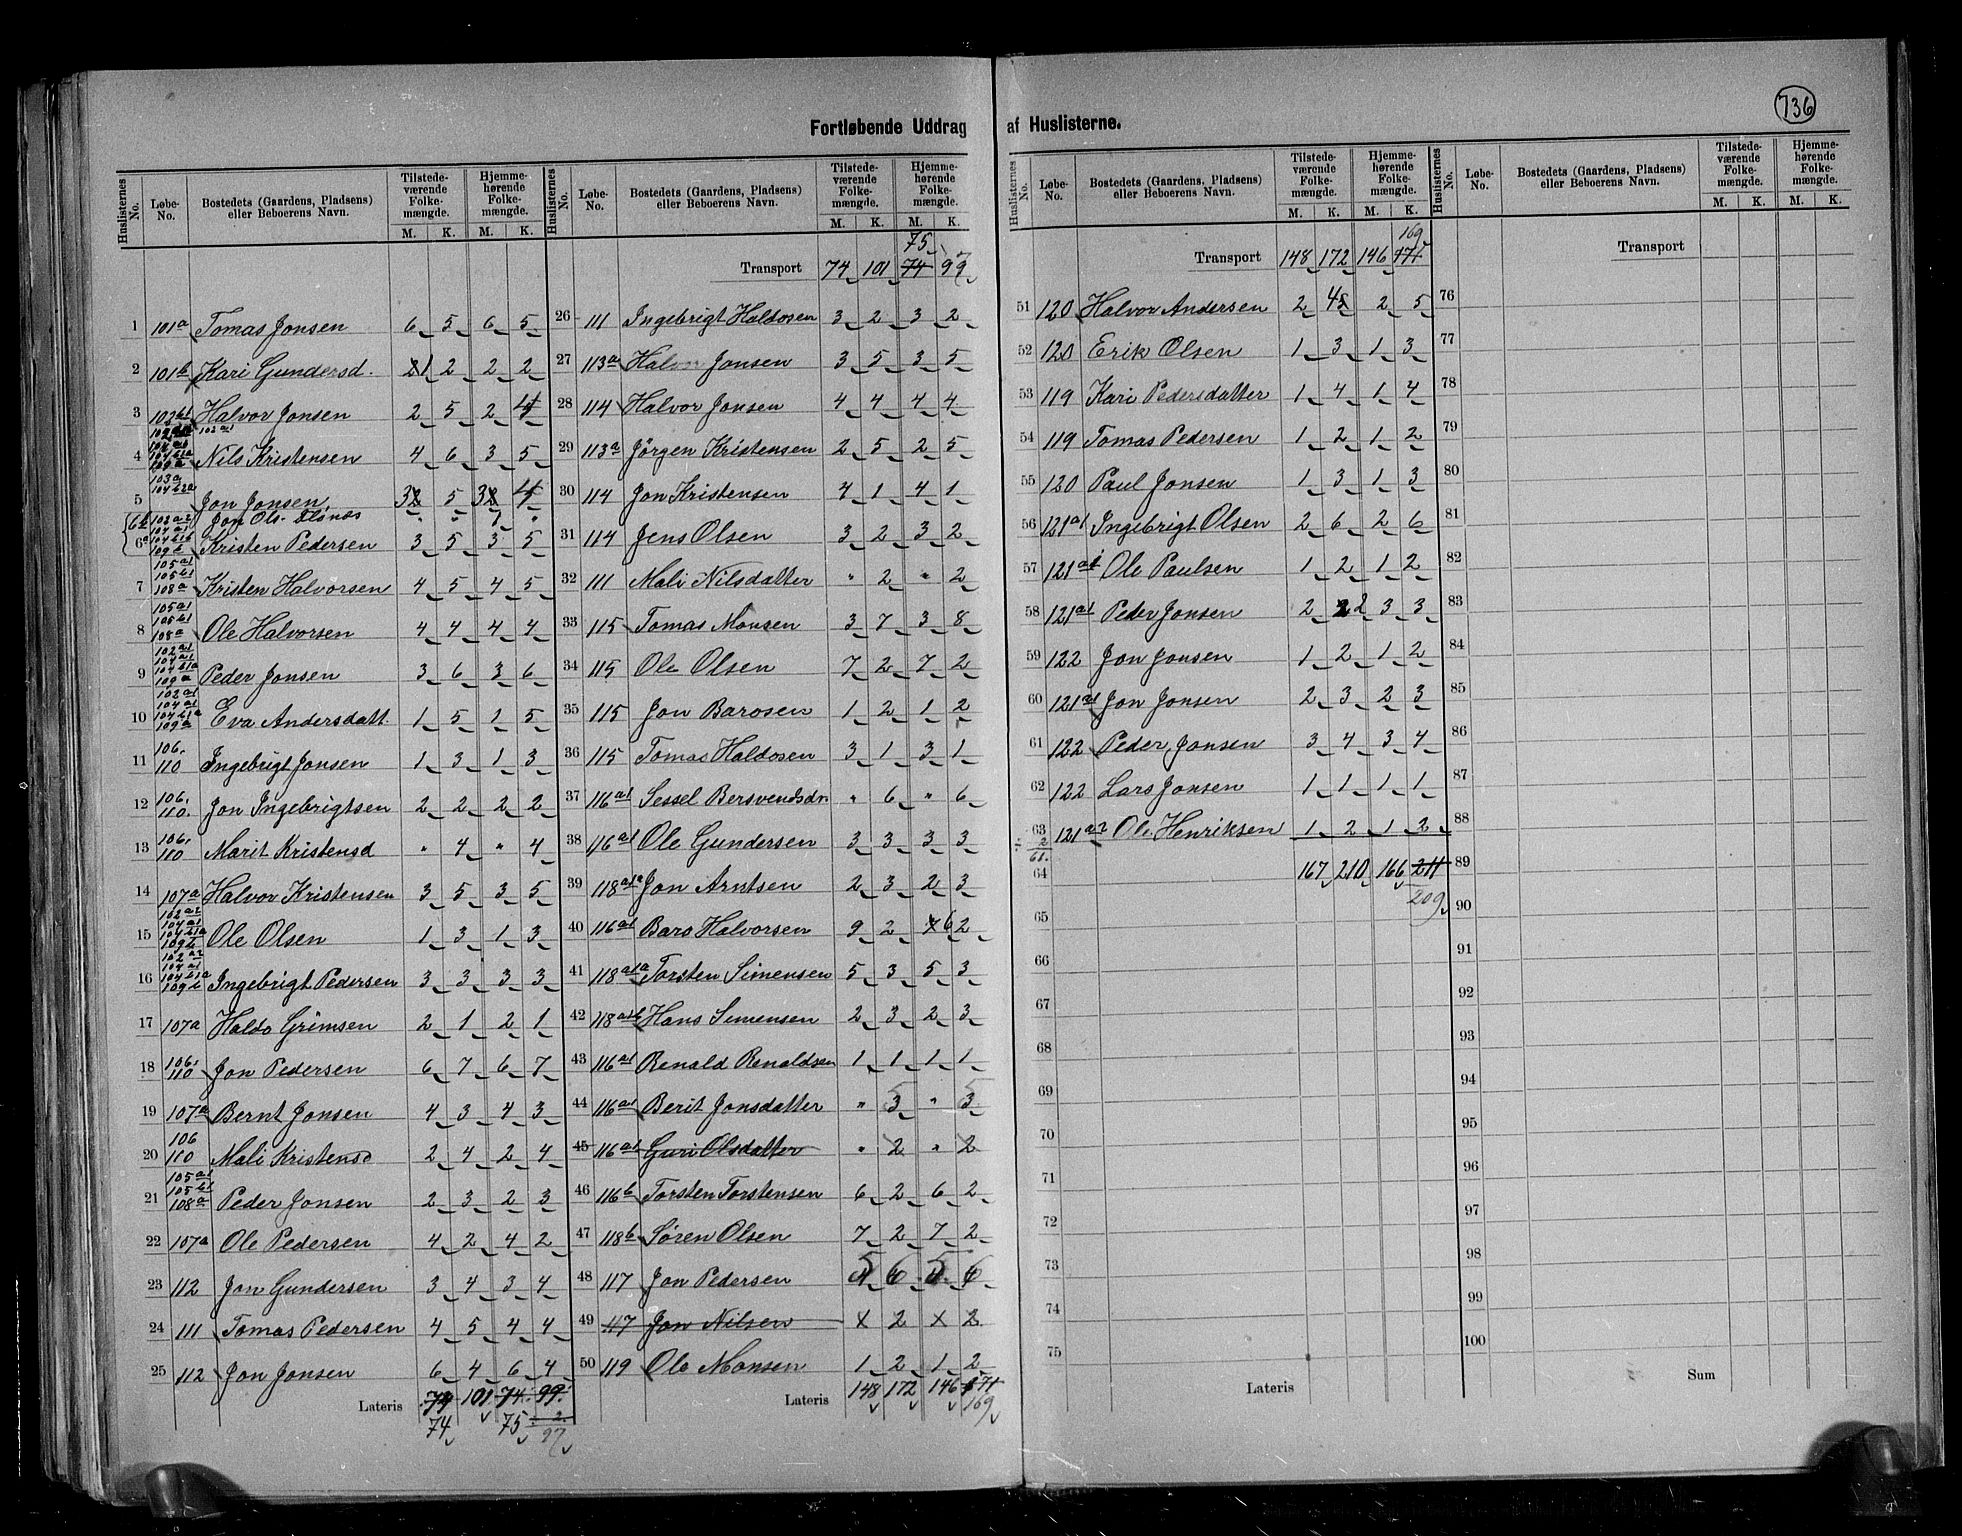 736
Fortløbende Uddrag af Huslisterne.
Huslisternes No. Løbe-No. Bostedets (Gaardens, Pladsens) eller Beboerens Navn. Tilstede-værende Folke-mængde. Hjemme-hørende Folke-mængde.
M. K. M. K.
1 101a Tomas Jonsen 6 5 6 5
2 101b Kari Gundersd. 1 2 2 2
3 Halvor Jonsen 2 5 2 4
4 Nils Kristensen 4 6 3 5
5 103a Jon Jonsen 3 5 3 4
6b Jon Ols. " " 1 "
6a Kristen Pedersen 3 5 3 5
7 105a1 105b1 108a Kristen Halvorsen 4 5 4 5
8 105a1 105b1 108a Ole Halvorsen 4 4 4 4
9 102a1 104a1 104b1a 109a Peder Jonsen 3 6 3 6
10 102a1 104a1 104b1a 109a Eva Andersdatt. 1 5 1 5
11 106. 110 Ingebrigt Jonsen 1 3 1 3
12 106. 110. Jon Ingebrigtsen 2 2 2 2
13 106. 110 Marit Kristensd " 4 " 4
14 107a Halvor Kristensen 3 5 3 5
15 102a2 104a1 104b1a 109b Ole Olsen 1 3 1 3
16 102a2 104a1 104b1a 109b Ingebrigt Pedersen 3 3 3 3
17 107a Haldo Grimsen 2 1 2 1
18 106. 110 Jon Pedersen 6 7 6 7
19 107a Bernt Jonsen 4 3 4 3
20 106 110 Mali Kristensd 2 4 2 4
21 105a1 105b1 108a Peder Jonsen 2 3 2 3
22 107a Ole Pedersen 4 2 4 2
23 112 Jon Gundersen 3 4 3 4
24 111 Tomas Pedersen 4 5 4 4
25 112 Jon Jonsen 6 4 6 4
Lateris 79 101 74. 99.
74 75 2. 97
Huslisternes No. Løbe-No. Bostedets (Gaardens, Pladsens) eller Beboerens Navn. Tilstede-værende Folke-mængde. Hjemme-hørende Folke-mængde.
M. K. M. K.
75
Transport 74 101 74 97
26 111 Ingebrigt Haldosen 3 2 3 2
27 113a Halvor Jonsen 3 5 3 5
28 114 Halvor Jonsen 4 4 4 4
29 113a Jörgen Kristensen 2 5 2 5
30 114 Jon Kristensen 4 1 4 1
31 114 Jens Olsen 3 2 3 2
32 111 Mali Nilsdatter " 2 " 2
33 115 Tomas Monsen 3 7 3 8
34 115 Ole Olsen 7 2 7 2
35 115 Jon Barosen 1 2 1 2
36 115 Tomas Haldosen 3 1 3 1
37 116a1 Sessel Bersvendsdr " 6 " 6
38 116a1 Ole Gundersen 3 3 3 3
39 118a1a Jon Arntsen 2 3 2 3
40 116a1 Baro Halvorsen 9 2 7 6 2
41 118a1a Torsten Simensen 5 3 5 3
42 118a1b Hans Simensen 2 3 2 3
43 116a1 Renald Renaldsen 1 1 1 1
44 116a1 Berit Jonsdatter " 5 " 5
45 116a1 Guri Olsdatter " 2 " 2
46 116b Torsten Torstensen 6 2 6 2
47 118b Søren Olsen 7 2 7 2
48 117 Jon Pedersen 5 6 5 6
49 117 Jon Nilsen 2 2
50 119 Ole Monsen 1 2 1 2
Lateris 148 172 146 171
169
Huslisternes No. Løbe-No. Bostedets (Gaardens, Pladsens) eller Beboerens Navn. Tilstede-værende Folke-mængde. Hjemme-hørende Folke-mængde.
M. K. M. K.
169
Transport 148 172 146 171
51 120 Halvor Andersen 2 4 2 5
52 120 Erik Olsen 1 3 1 3
53 119 Kari Pedersdatter 1 4 1 4
54 119 Tomas Pedersen 1 2 1 2
55 120 Paul Jonsen 1 3 1 3
56 121a1 Ingebrigt Olsen 2 6 2 6
57 121a1 Ole Paulsen 1 2 1 2
58 121a1 Peder Jonsen 2 2 3 3
59 122 Jon Jonsen 1 2 1 2
60 121a1 Jon Jonsen 2 3 2 3
61 122 Peder Jonsen 3 4 3 4
62 122 Lars Jonsen 1 1 1 1
63 121a2 Ole Henriksen 1 2 1 2
÷ 2
61.
64 167 210 166 211
209
65
66
67
68
69
70
71
72
73
74
75
Lateris
Huslisternes No. Løbe-No. Bostedets (Gaardens, Pladsens) eller Beboerens Navn. Tilstede-værende Folke-mængde. Hjemme-hørende Folke-mængde.
M. K. M. K.
Transport
76
77
78
79
80
81
82
83
84
85
86
87
88
89
90
91
92
93
94
95
96
97
98
99
100
Sum